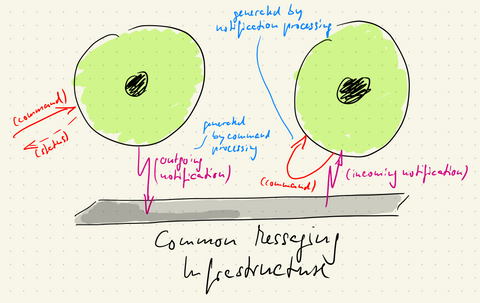 generated by
notification processing
(command)
(status)
generated
by command
processing
(outgoing
notification)
(command)
(incoming notification)
Common Messaging
Infrastructure